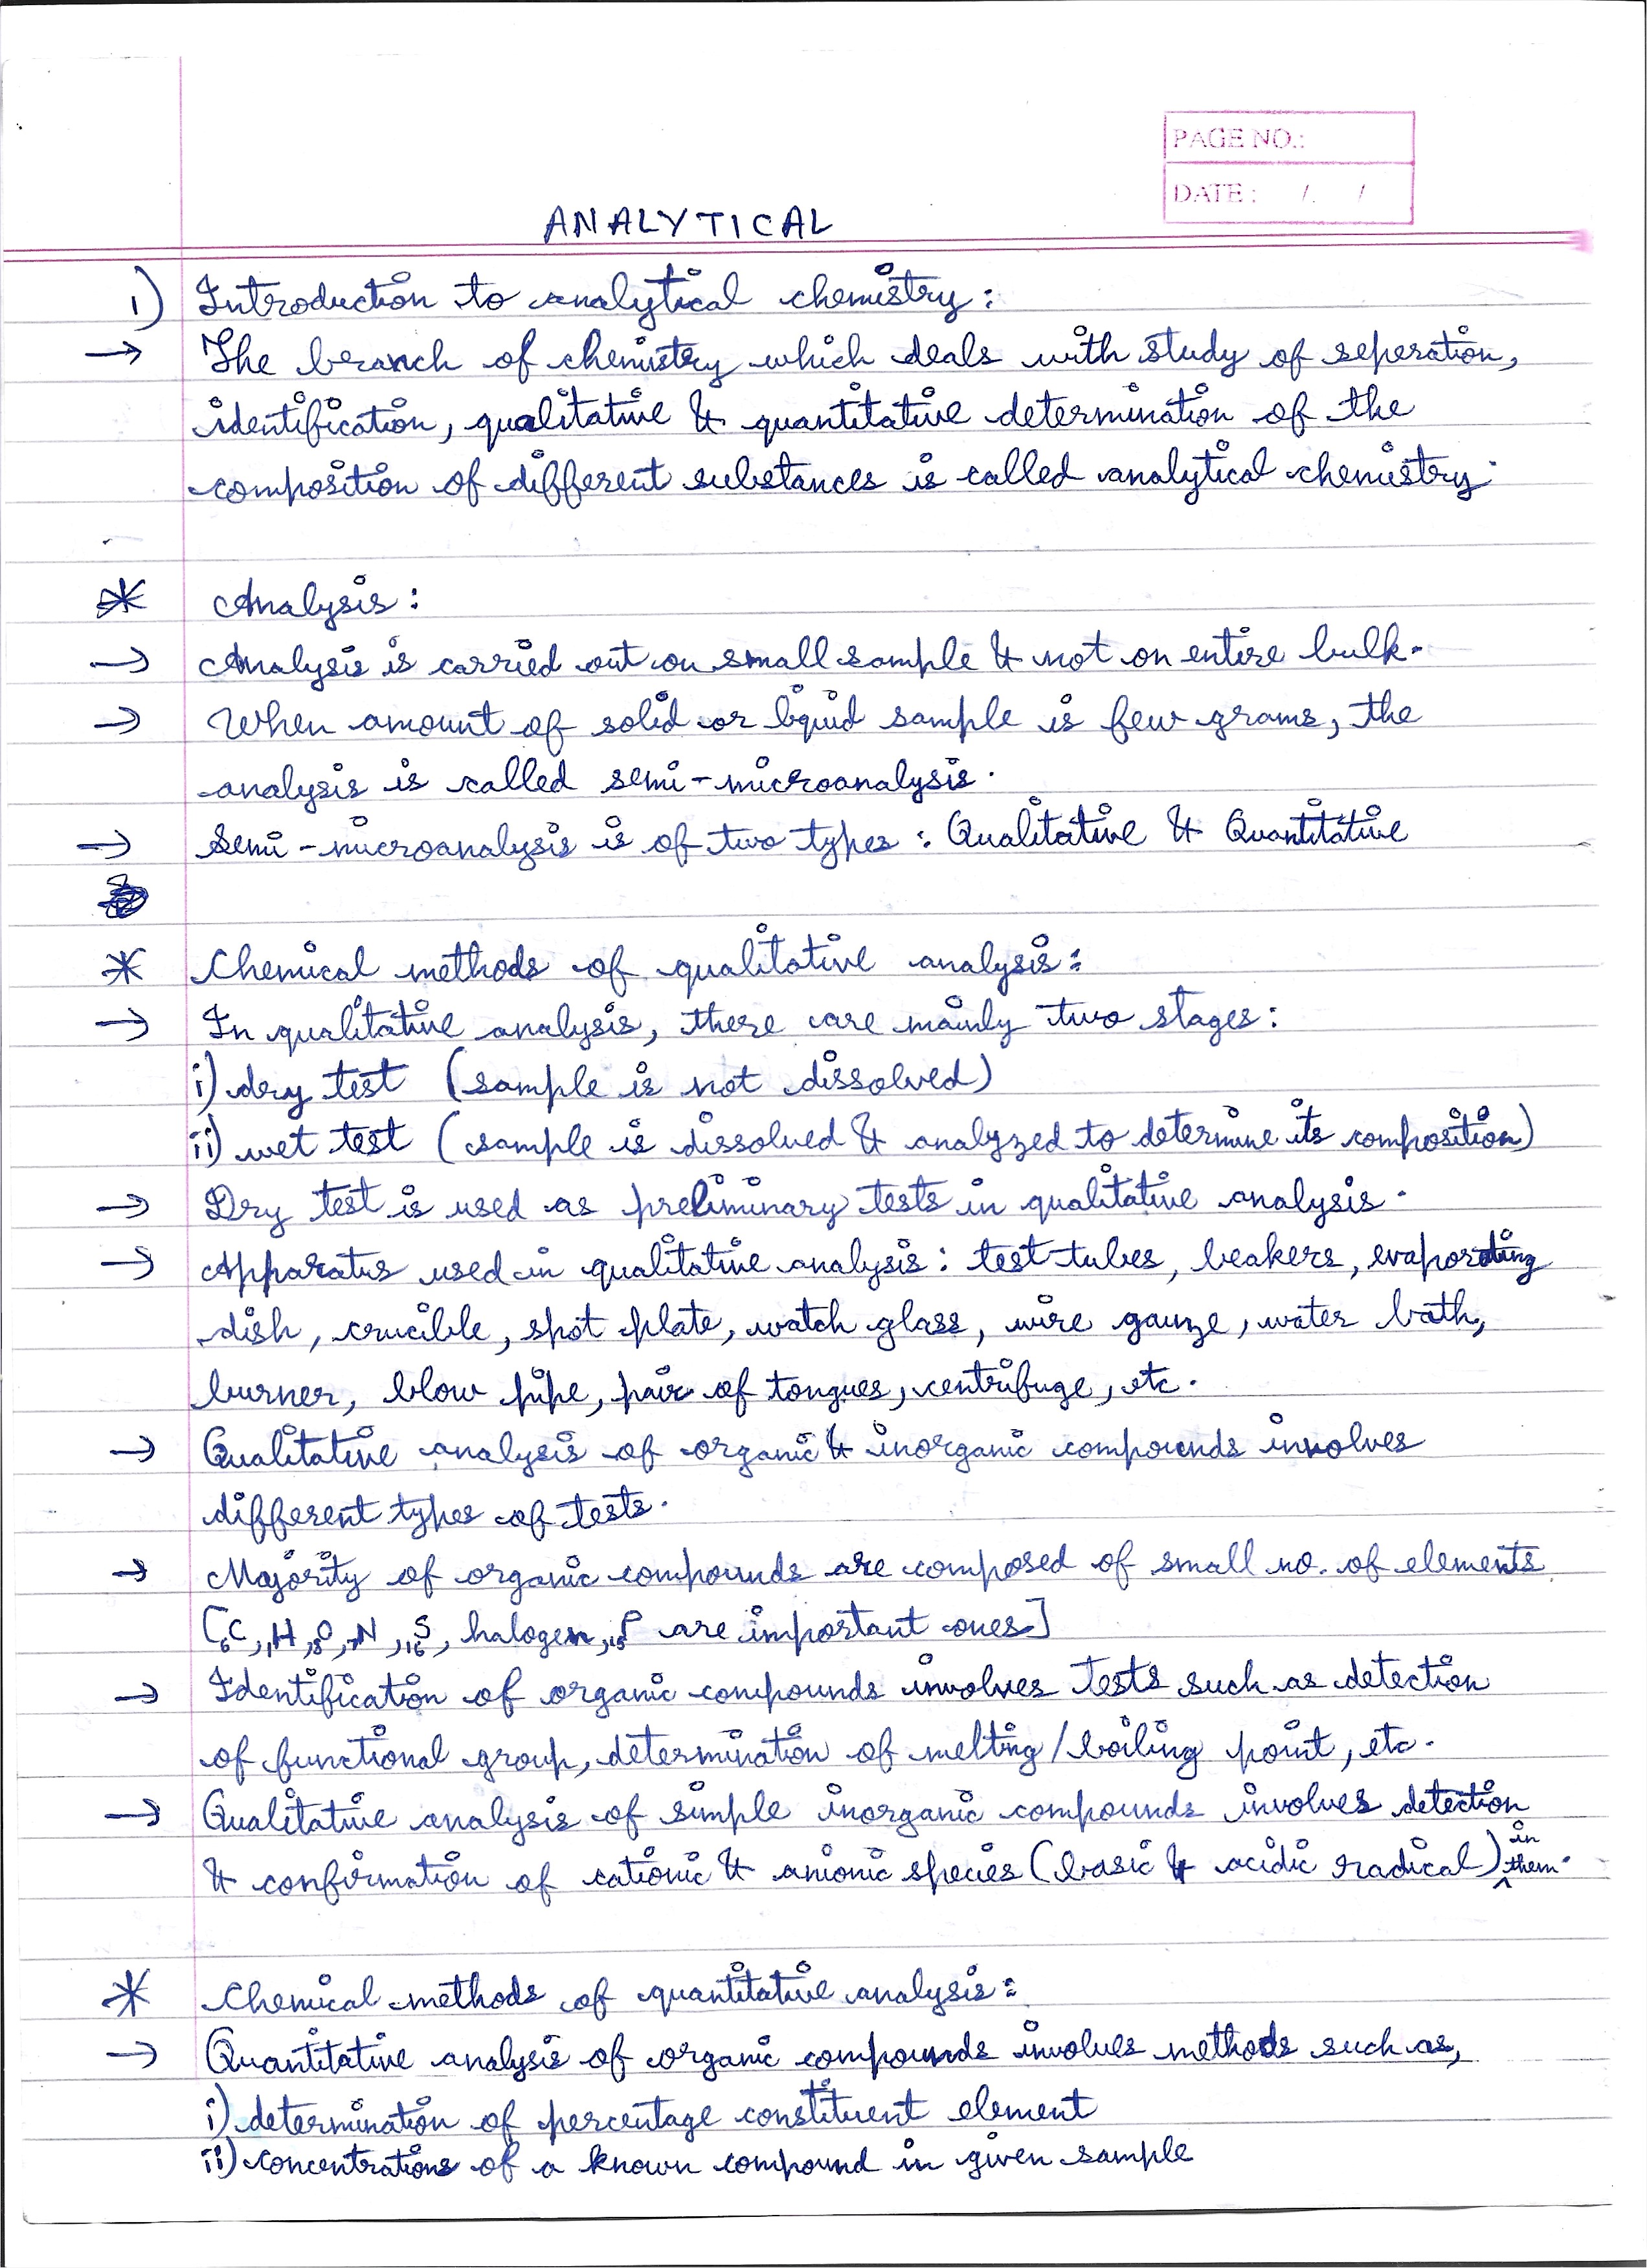 PAGE NO.:
DATE : / /
ANALYTICAL
1) Introduction to analytical chemistry:
→ The branch of chemistry which deals with study of seperation,
identification, qualitative & quantitative determination of the
composition of different substances is called analytical chemistry.
* Analysis:
→ Analysis is carried out on small sample & not on entire bulk.
→ When amount of solid or liquid sample is few grams, the
analysis is called semi-microanalysis.
→ Semi-microanalysis is of two types: Qualitative & Quantitative
* Chemical methods of qualitative analysis:
→ In qualitative analysis, there are mainly two stages:
i) dry test (sample is not dissolved)
ii) wet test (sample is dissolved & analyzed to determine its composition)
→ Dry test is used as preliminary tests in qualitative analysis.
→ Apparatus used in qualitative analysis: test tubes, beakers, evaporating
dish, crucible, spot plate, watch glass, wire gauze, water bath,
burner, blow pipe, pair of tongues, centrifuge, etc.
→ Qualitative analysis of organic & inorganic compounds involves
different types of tests.
→ Majority of organic compounds are composed of small no. of elements
[₆C, ₁H, ₈O, ₇N, ₁₆S, halogen, ₁₅P are important ones]
→ Identification of organic compounds involves tests such as detection
of functional group, determination of melting/boiling point, etc.
→ Qualitative analysis of simple inorganic compounds involves detection
& confirmation of cationic & anionic species (basic & acidic radical) in them.
* Chemical methods of quantitative analysis:
→ Quantitative analysis of organic compounds involves methods such as,
i) determination of percentage constituent element
ii) concentrations of a known compound in given sample